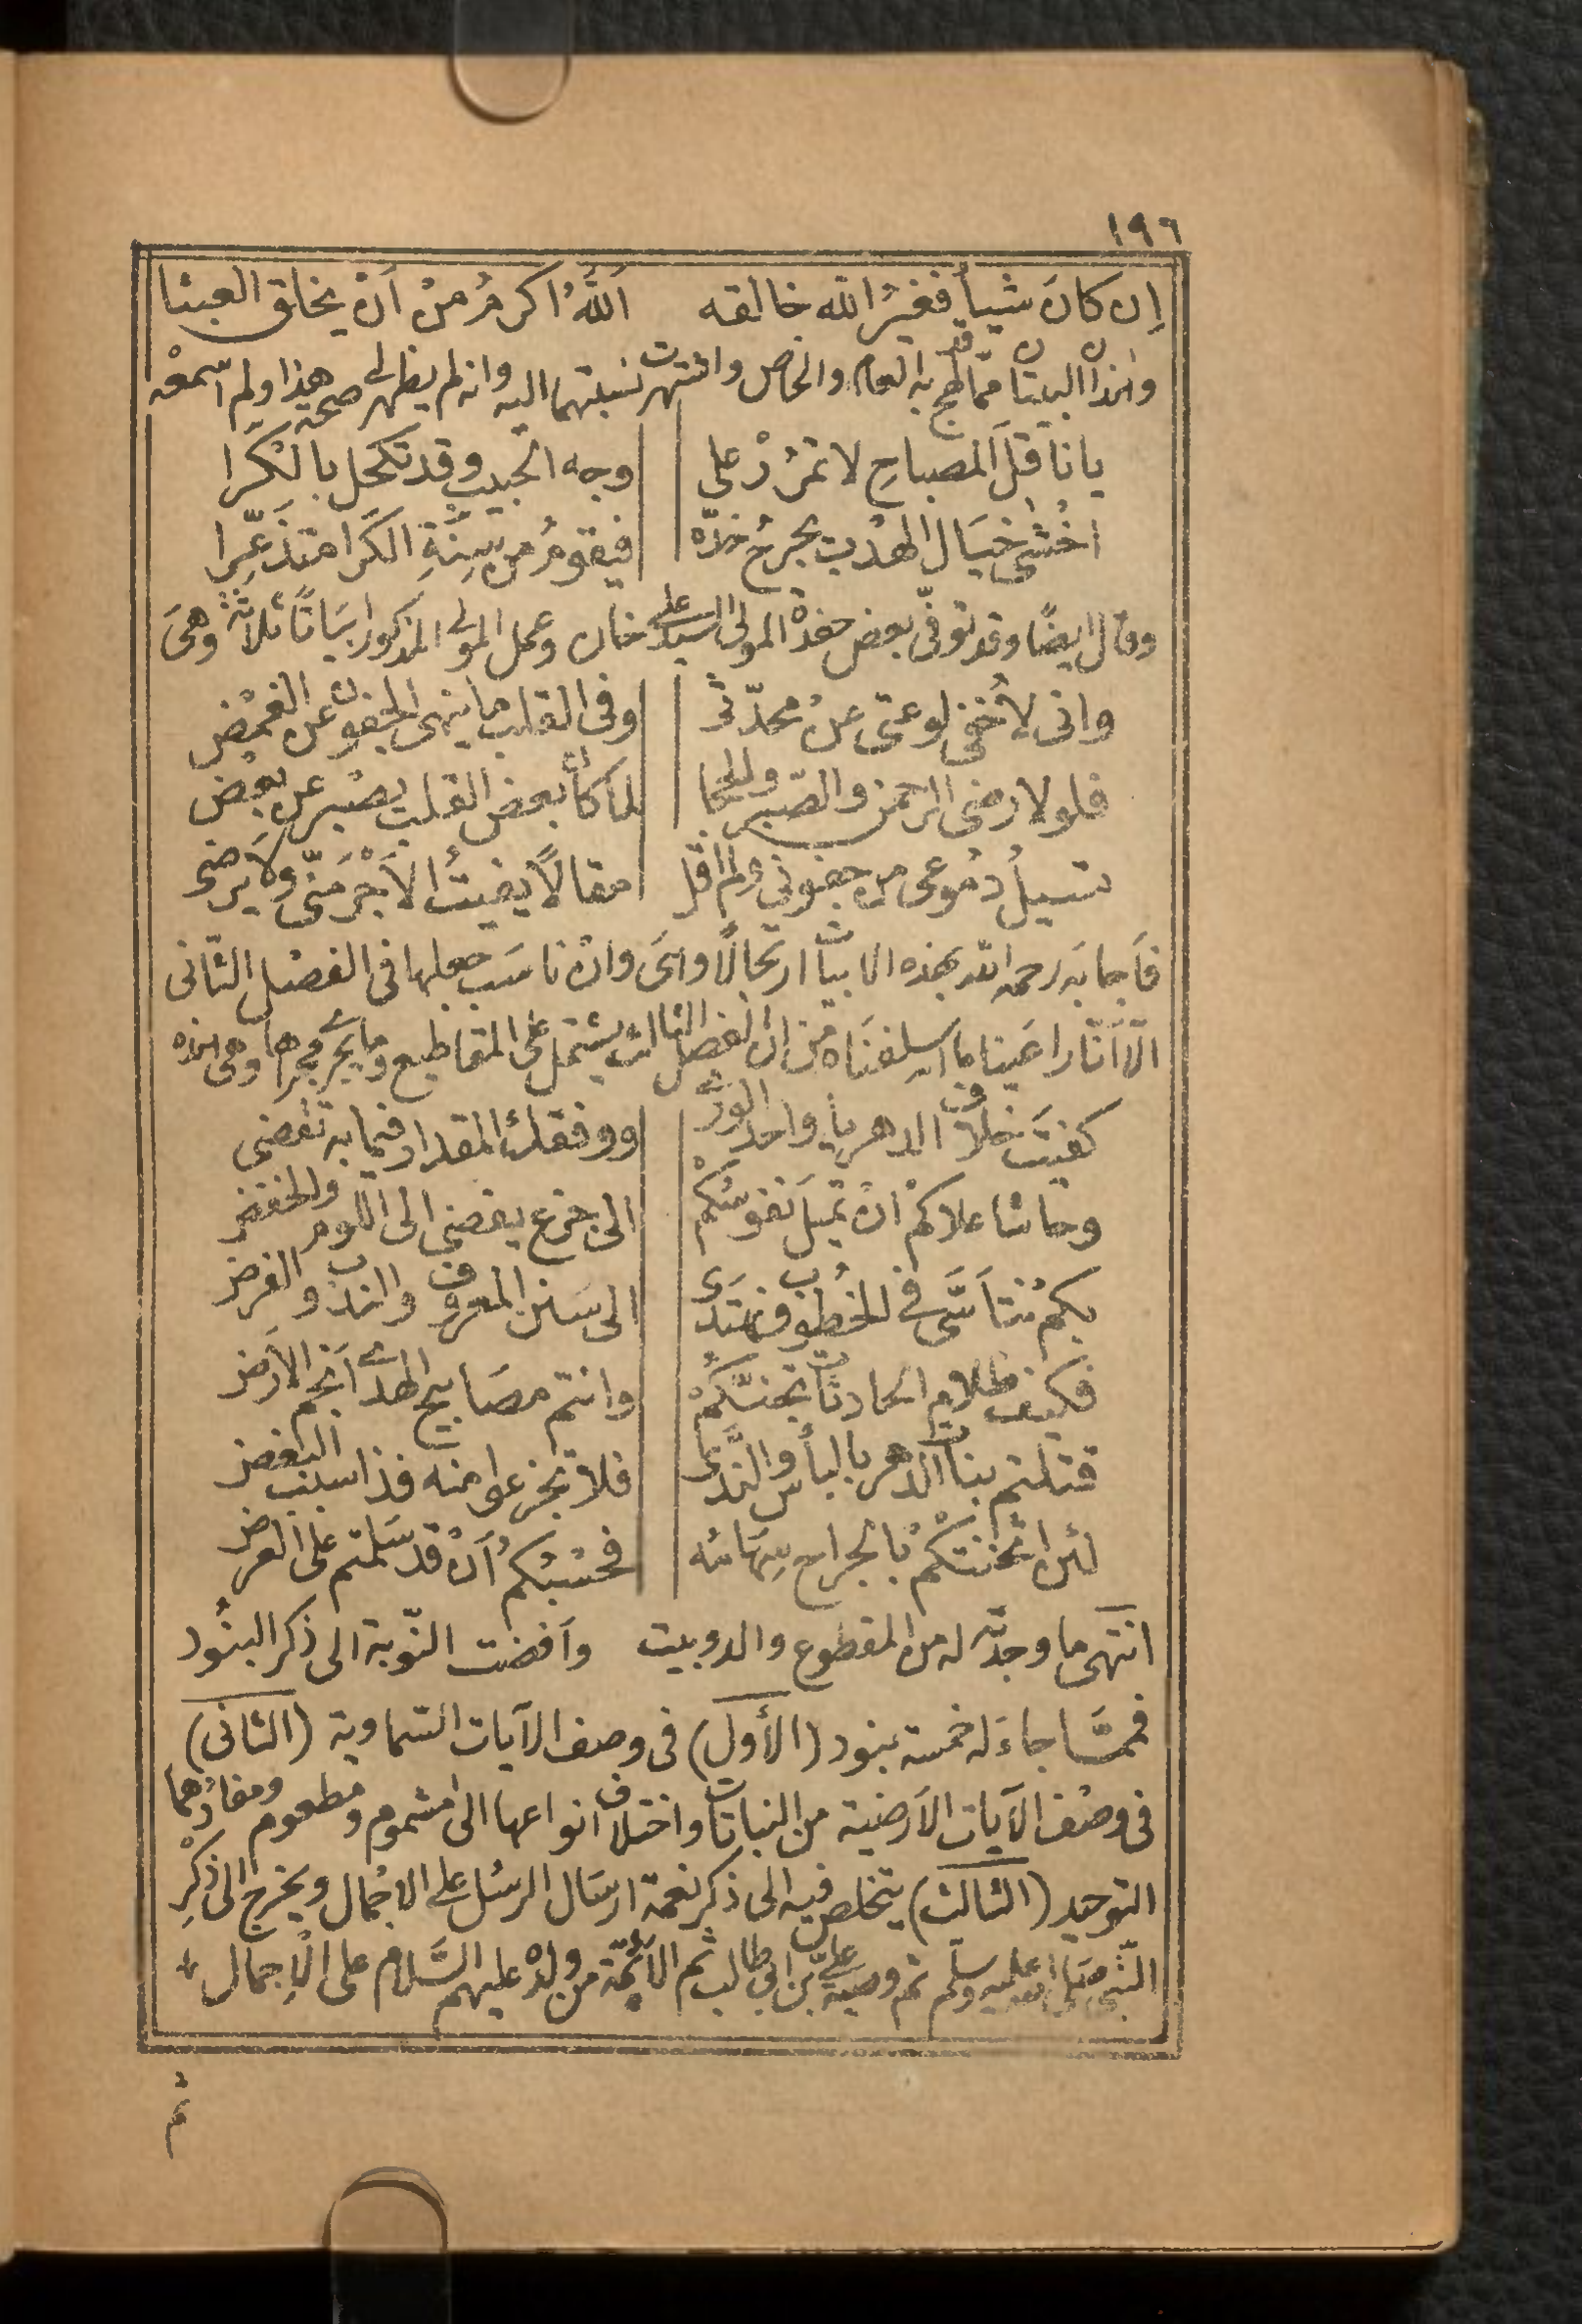 ١٩٦
إن كانَ شيأً فغيرُ الله خالقه اَللّٰهُ اكرمُ منْ اَنْ يخلق العبثا
وهٰذان البيتان ممّا قد لهج به العام والخاص واشتهرت نسبتهما اليه وانه لم يظهر لى صحة هذا ولم اسمعْه
يا ناقلَ المصباحِ لا تمرُرْ على وجه الحبيب وقد تكحل بالكرَا
اخشىٰ خيَال الهدْب يجرحُ خدّه فيقومُ من سِنَةِ الكَرا متذعِّرا
وقال ايضًا وقد توفّى بعض حفدة المولى السيد على خان وعمل المولى المذكور ابيَاتًا ثلاثة وهىَ
وانى لأُخفى لوعتى عنْ محدّثى وفى القلب ما ينهى الجفون عن الغمْض
فلولا رضى الرحمن والصّبر والحجا لما كان بعض القلب يصْبر عن بعْض
تسيلُ دمُوعى من جفونى ولم اقل مقالاً يفيتُ الأَجْرَ منّى ولا يرضى
فاَجابَه رحمه الله بهذه الابيات ارتجالًا وهىَ وانْ ناسَب جعلها فى الفصْل الثّانى
الاّ اَنّا راعَينا ما اسلفنَاه من ان الفصل الثالث يشتمل على المقاطيع وما يجرى مجراها وهى هٰذه
كفيتَ خلاف الدهر يا واحد الورى ووفقك المقدار فيما به تقضى
وحاشا علاكمْ انْ تميلَ نفوسُكمْ الى جزع يفضى الى اللوم والخفض
بكمْ نتأسَّى فى الخُطُوب ونهتدَى الى سَنن المعروف والندب والفرض
فكيف ظلام الحادثات تجنُّكُمْ وانتم مصَابيح الهدى اَنجم الاَرض
قتلتم بنات الدهر بالبأس والنَّدَى فلا تجزعوا منه فذا سبب البغض
لئن اثخنتكمْ بالجراح سِهَامُه فحسْبُكمُ اَنْ قد سَلمتم على العرض
انتهى ما وجدّته له من المقطوع والدوبيت وآفضت النّوبة الى ذكر البنُود
فممَّا جاءَ له خمسة بنود (الأول) فى وصف الآيات السّماوية (الثانى)
فى وصْف الآيات الاَرضية من النباتات واختلاف انواعها الى مشموم ومطعوم ومفادُهما
التوحيد (الثالث) يتخلص فيه الى ذكر نعمة ارسَال الرسُل على الاجْمال ويخرج الى ذكْرِ
النّبى صَلى الله عليه وسلم ثم وصيه علىّ بن ابى طالب ثم الأئمّة من ولده عليهم السَّلام على الْاِجمال
ثم